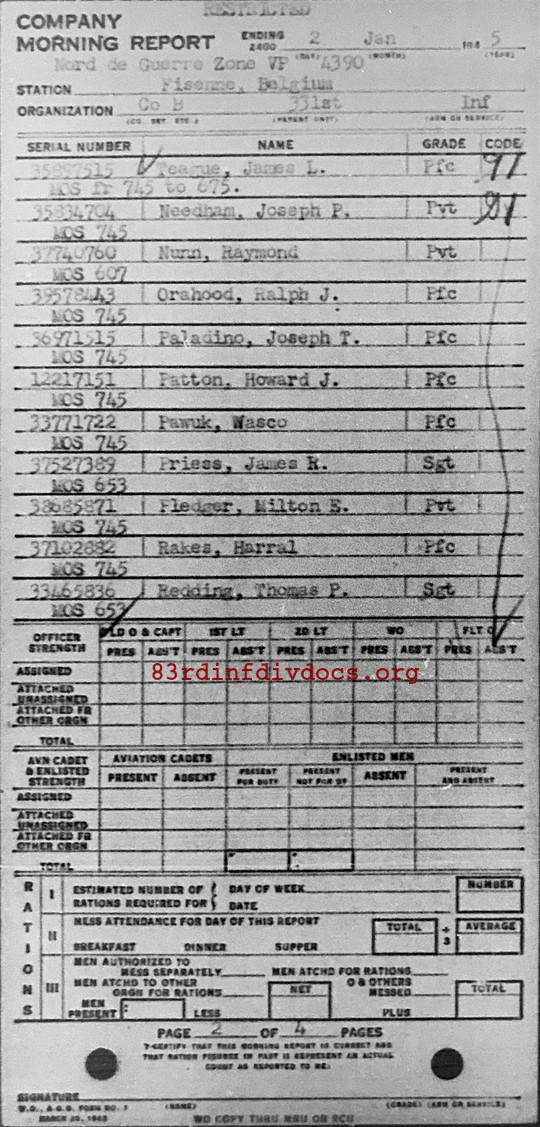 RESTRICTED
COMPANY
MORNING REPORT
ENDING 2400 2 Jan 194 5
(DAY) (MONTH) (YEAR)
Nord de Guerre Zone VP 4390
STATION Fisenne, Belgium
ORGANIZATION Co B 331st Inf
(CO. DET. ETC.) (PARENT UNIT) (ARM OR SERVICE)
SERIAL NUMBER NAME GRADE CODE
35857515 Teague, James L. Pfc 91
MOS fr 745 to 675.
35834704 Needham, Joseph P. Pvt
MOS 745
37740760 Nunn, Raymond Pvt
MOS 607
39578443 Orahood, Ralph J. Pfc
MOS 745
36971515 Paladino, Joseph T. Pfc
MOS 745
12217151 Patton, Howard J. Pfc
MOS 745
33771722 Pawuk, Wasco Pfc
MOS 745
37527389 Priess, James R. Sgt
MOS 653
38685871 Pledger, Milton E. Pvt
MOS 745
37102882 Rakes, Harral Pfc
MOS 745
33465836 Redding, Thomas P. Sgt
MOS 653
OFFICER STRENGTH FLD O & CAPT 1ST LT 2D LT WO FLT O
PRES ABS'T PRES ABS'T PRES ABS'T PRES ABS'T PRES ABS'T
ASSIGNED
83rdinfdivdocs.org
ATTACHED UNASSIGNED
ATTACHED FR OTHER ORGN
TOTAL
AVN CADET & ENLISTED STRENGTH AVIATION CADETS ENLISTED MEN
PRESENT ABSENT PRESENT FOR DUTY PRESENT NOT FOR DY ABSENT PRESENT AND ABSENT
ASSIGNED
ATTACHED UNASSIGNED
ATTACHED FR OTHER ORGN
TOTAL
RATIONS
I ESTIMATED NUMBER OF RATIONS REQUIRED FOR { DAY OF WEEK DATE NUMBER
II MESS ATTENDANCE FOR DAY OF THIS REPORT TOTAL ÷ 3 AVERAGE
BREAKFAST DINNER SUPPER
III MEN AUTHORIZED TO MESS SEPARATELY MEN ATCHD FOR RATIONS
MEN ATCHD TO OTHER ORGN FOR RATIONS NET O & OTHERS MESSED TOTAL
MEN PRESENT LESS PLUS
PAGE 2 OF 4 PAGES
I CERTIFY THAT THIS MORNING REPORT IS CORRECT AND
THAT RATION FIGURES IN PART III REPRESENT AN ACTUAL
COUNT AS REPORTED TO ME:
SIGNATURE
(NAME) (GRADE) (ARM OR SERVICE)
W.D., A.G.O. FORM NO. 1
MARCH 20, 1943
WD COPY THRU MRU OR SCU